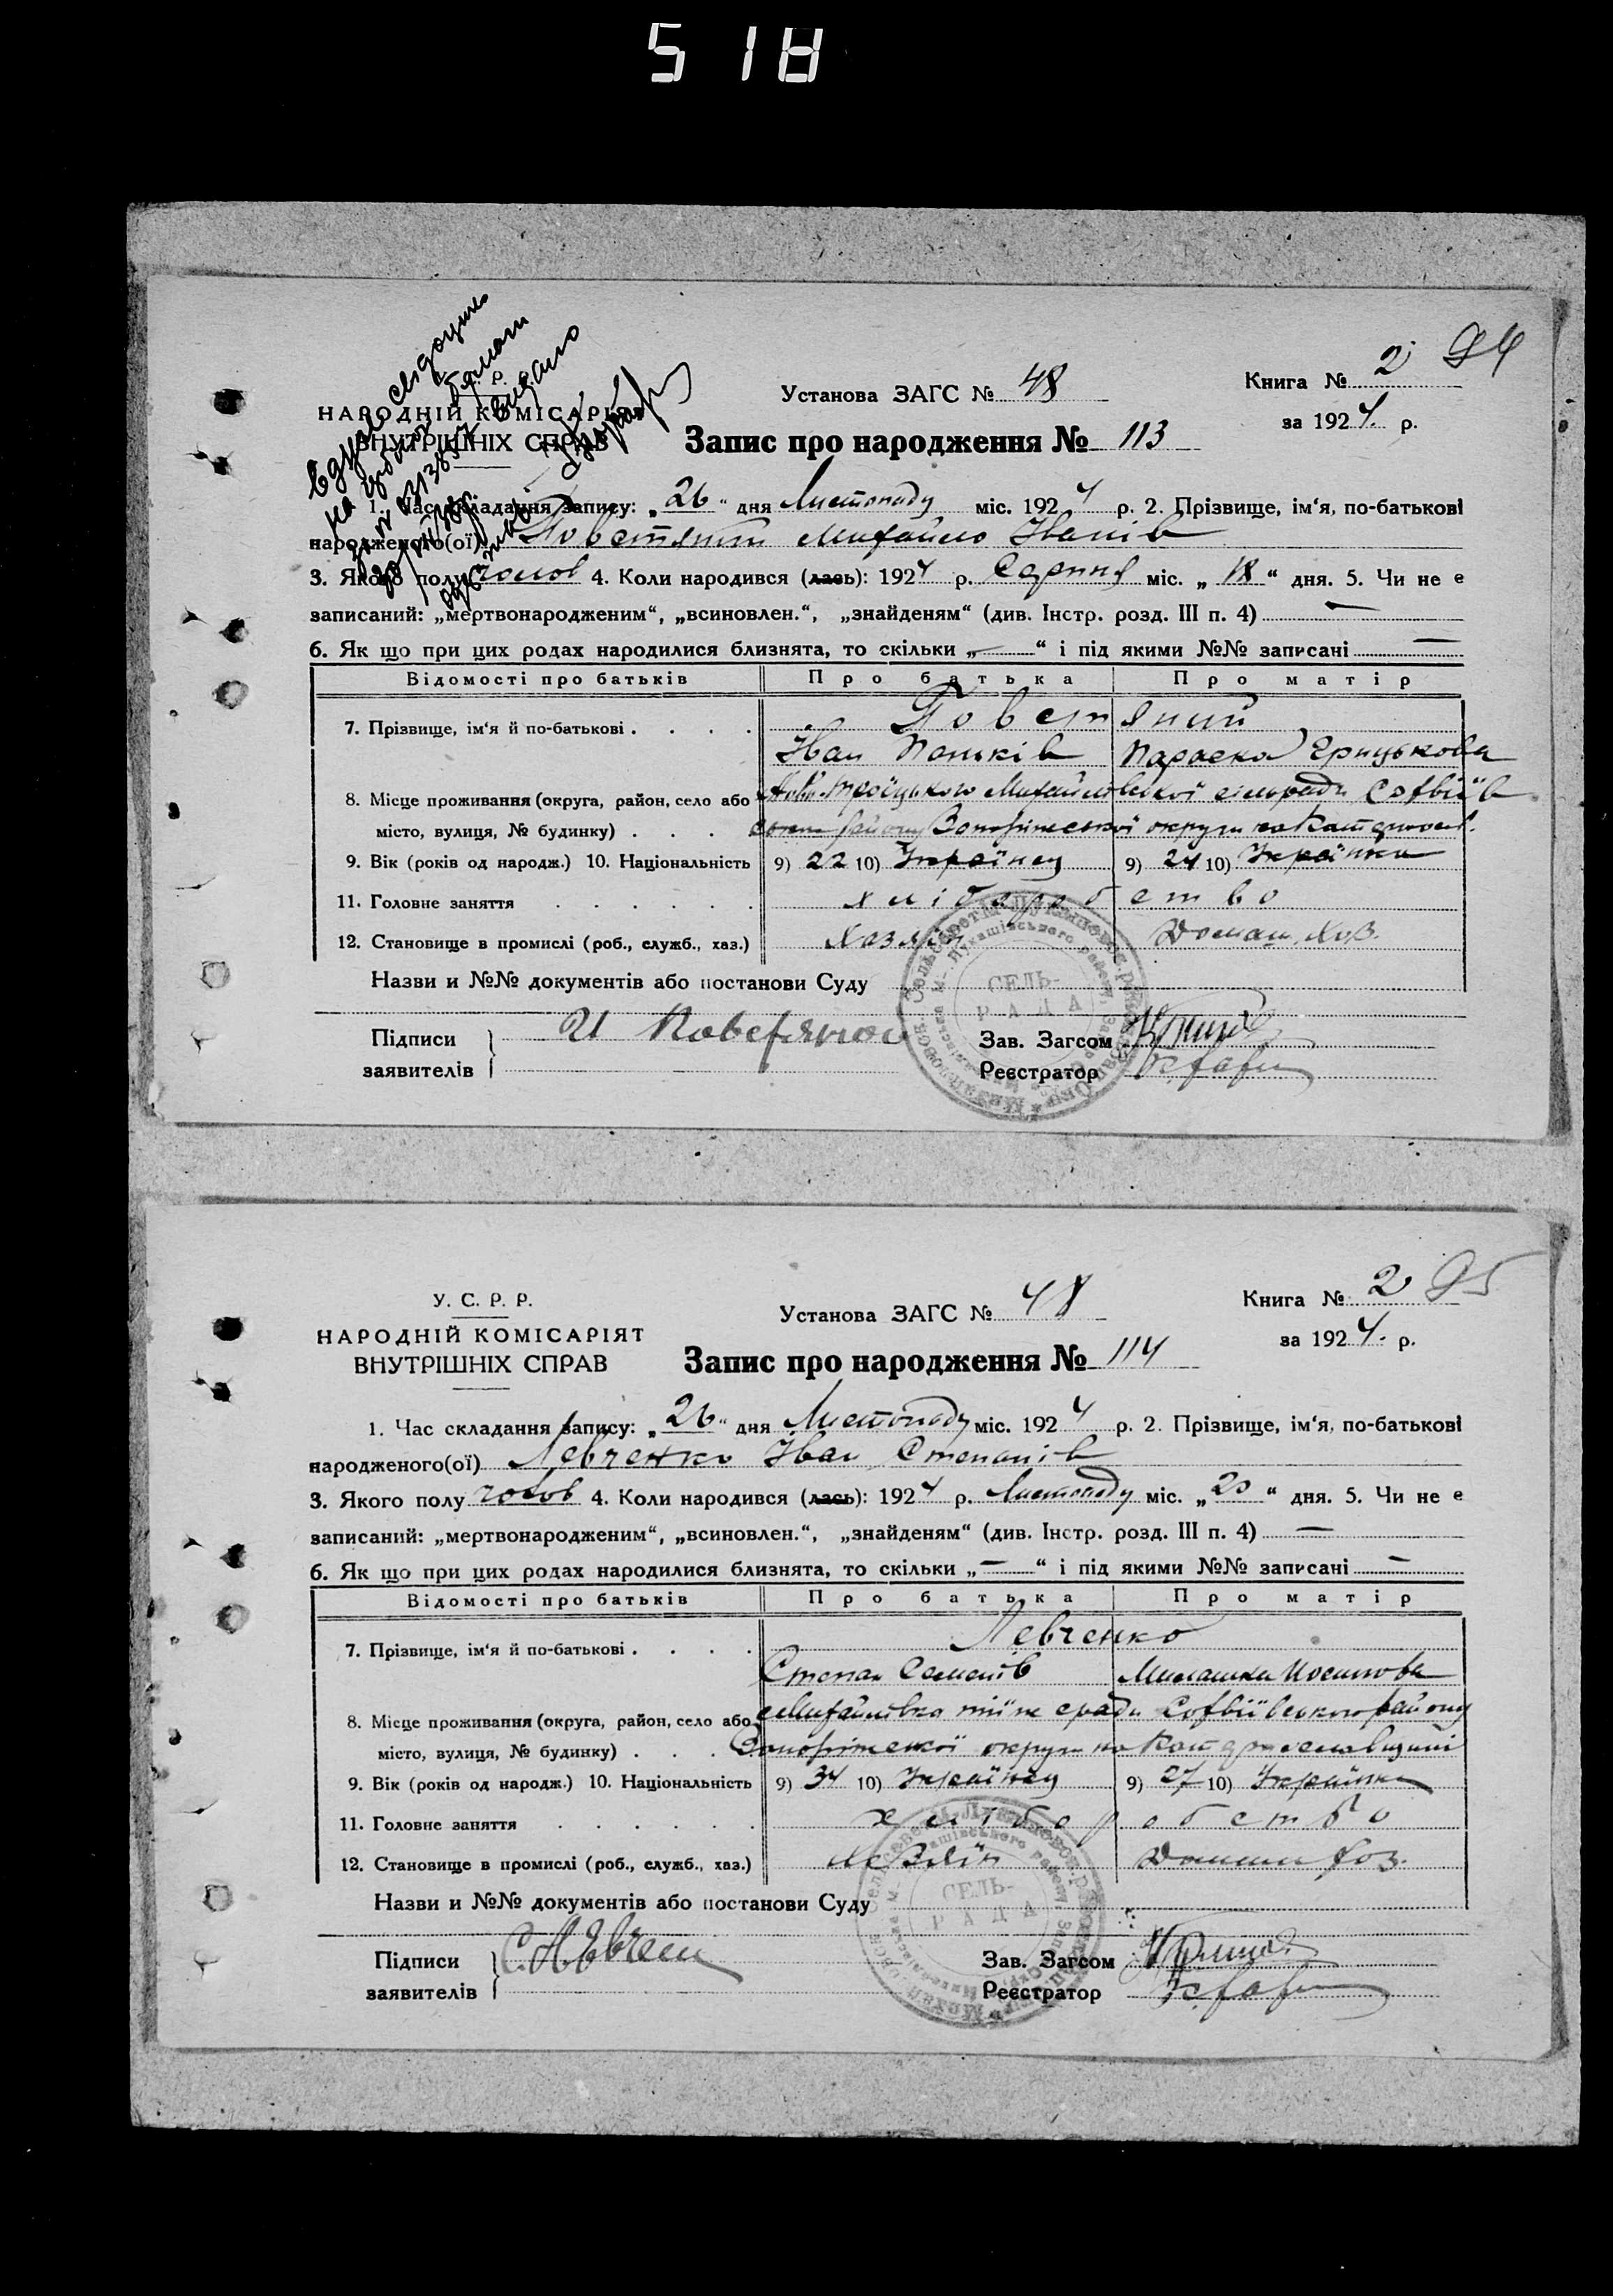 518
94
Установа ЗАГС № 48
Книга № 2
за 1924. р.
НАРОДНІЙ КОМІСАРІЯТ
ВНУТРІШНІХ СПРАВ
Запис про народження № 113
1. Час складання запису: „26“ дня Листопаду міс. 1924 р. 2. Прізвище, ім‘я, по-батькові
народженого(ої) Повстяний Михайло Іванів
3. Якого полу чолов 4. Коли народився (лась): 1924 р. Серпня міс. „18“ дня. 5. Чи не є
записаний: „мертвонародженим“, „всиновлен.“, „знайденям“ (див. Інстр. розд. III п. 4) —
6. Як що при цих родах народилися близнята, то скільки „—“ і під якими №№ записані —
Відомості про батьків Про батька Про матір
7. Прізвище, ім‘я й по-батькові . . . . Повстяний
Іван Паньків Параска Грицькова
8. Місце проживання (округа, район, село або Ново-Троїцького Михайлівської сільради Софіїв
місто, вулиця, № будинку) . . . району Запоріжської округи на
9. Вік (років од народж.) 10. Національність 9) 22 10) Українец 9) 24 10) Українка
11. Головне заняття . . . . . . хліборобство
12. Становище в промислі (роб., служб., хаз.) Хазяїн Домаш. Хоз.
Назви и №№ документів або постанови Суду
СЕЛЬ-
РАДА
Підписи
заявителів
Зав. Загсом
Реєстратор
95
У. С. Р. Р.
Установа ЗАГС № 48
Книга № 2
за 1924. р.
НАРОДНІЙ КОМІСАРІЯТ
ВНУТРІШНІХ СПРАВ
Запис про народження № 114
1. Час складання запису: „26“ дня Листопаду міс. 1924 р. 2. Прізвище, ім‘я, по-батькові
народженого(ої) Левченко Іван Степанів
3. Якого полу чолов 4. Коли народився (лась): 1924 р. Листопаду міс. „20“ дня. 5. Чи не є
записаний: „мертвонародженим“, „всиновлен.“, „знайденям“ (див. Інстр. розд. III п. 4) —
6. Як що при цих родах народилися близнята, то скільки „—“ і під якими №№ записані —
Відомості про батьків Про батька Про матір
7. Прізвище, ім‘я й по-батькові . . . . Левченко
Степан Семенів Милашка Иосипова
8. Місце проживання (округа, район, село або Михайлівка тіїж сради Софіївського району
місто, вулиця, № будинку) . . . Запоріжської округи на Катеринославщині
9. Вік (років од народж.) 10. Національність 9) 34 10) Українец 9) 27 10) Українка
11. Головне заняття . . . . . . хліборобство
12. Становище в промислі (роб., служб., хаз.) Хазяїн Домаш хоз.
Назви и №№ документів або постанови Суду
СЕЛЬ-
РАДА
Підписи С. Левчен
заявителів
Зав. Загсом
Реєстратор